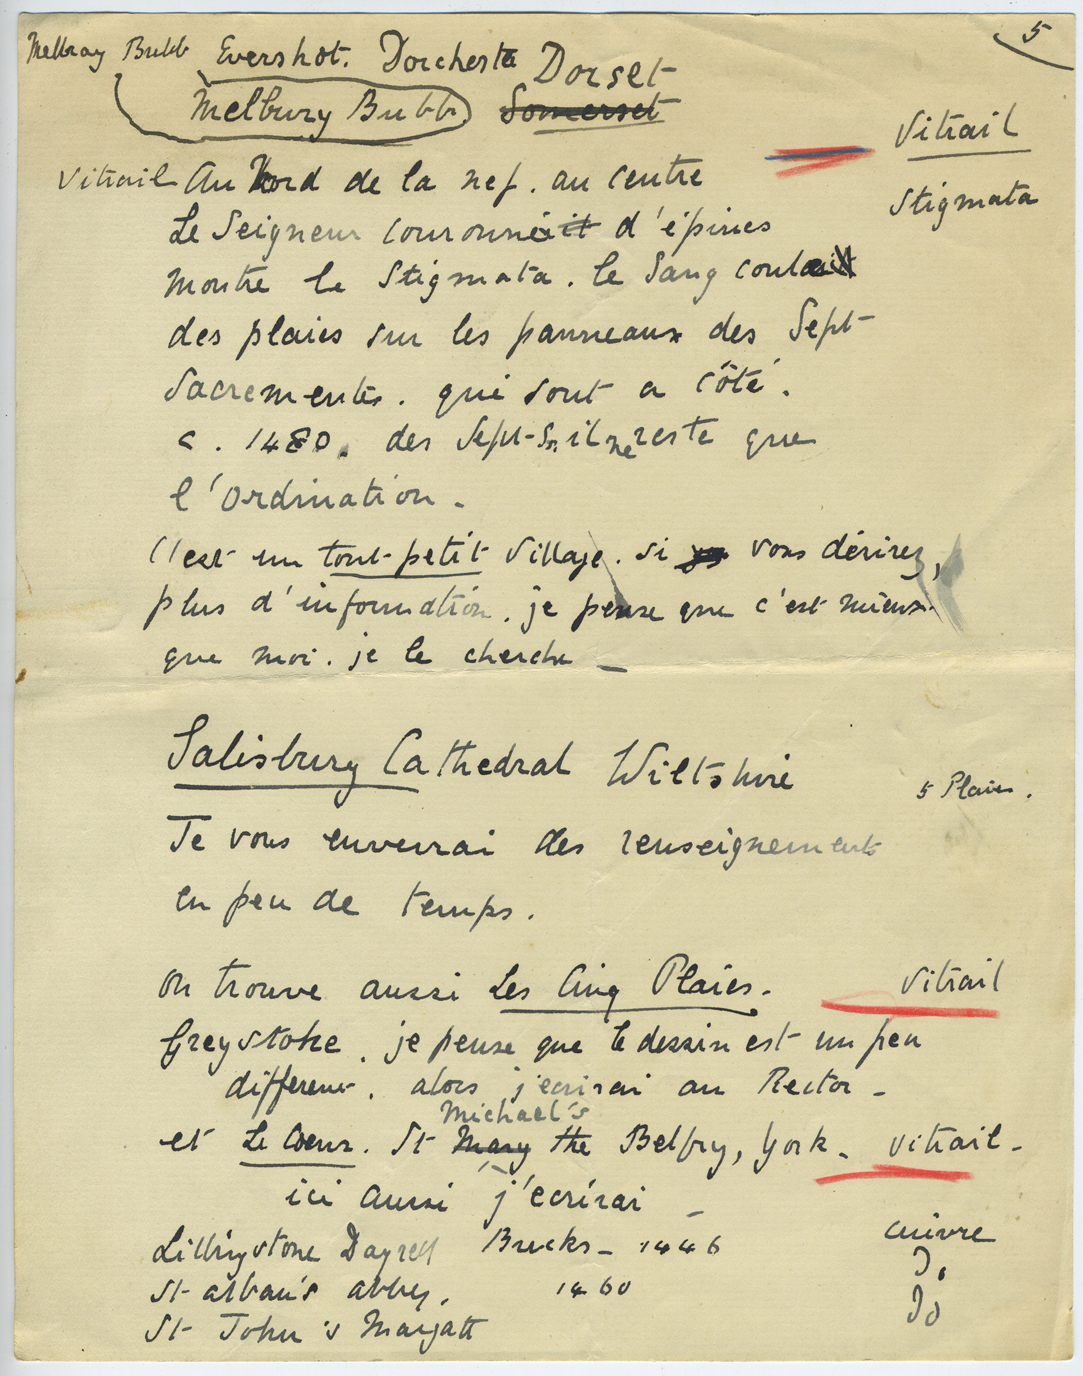 5
Melbray Bubb Evershot. Dorchester Dorset
Melbury Bubb Somerset
Vitrail
Vitrail Au Nord de la nef. au centre
Stigmata
Le Seigneur couronné d'épines
montre le Stigmata. le Sang coulait
des plaies sur les panneaux des Sept
Sacrements. qui sont a côté.
c. 1480. des Sept-S, il ne reste que
l'Ordination -
C'est un tout-petit village. si vous désirez,
plus d'information. je pense que c'est mieux
que moi. je le cherche -
Salisbury Cathedral Wiltshire
5 Plaies.
Je vous enverrai des renseignements
en peu de temps.
On trouve aussi Les Cinq Plaies. Vitrail
Greystoke. je pense que le dessin est un peu
different. alors j'ecrirai au Rector -
Michael's
et Le Coeur. St Mary the Belfry, York - vitrail -
ici aussi j'ecrirai -
Lillingstone Dayrell Bucks - 1446 cuivre
St alban's abbey. 1460 Do
St John's Margate Do